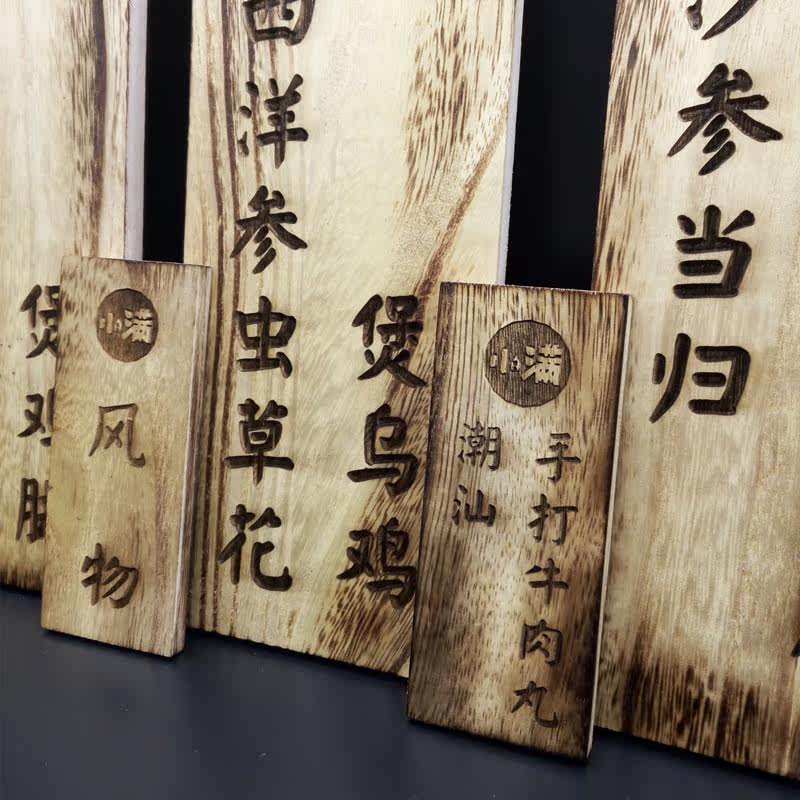 煲鸡
小满
风物
西洋参虫草花
煲乌鸡
小满
潮汕
手打牛肉丸
参当归